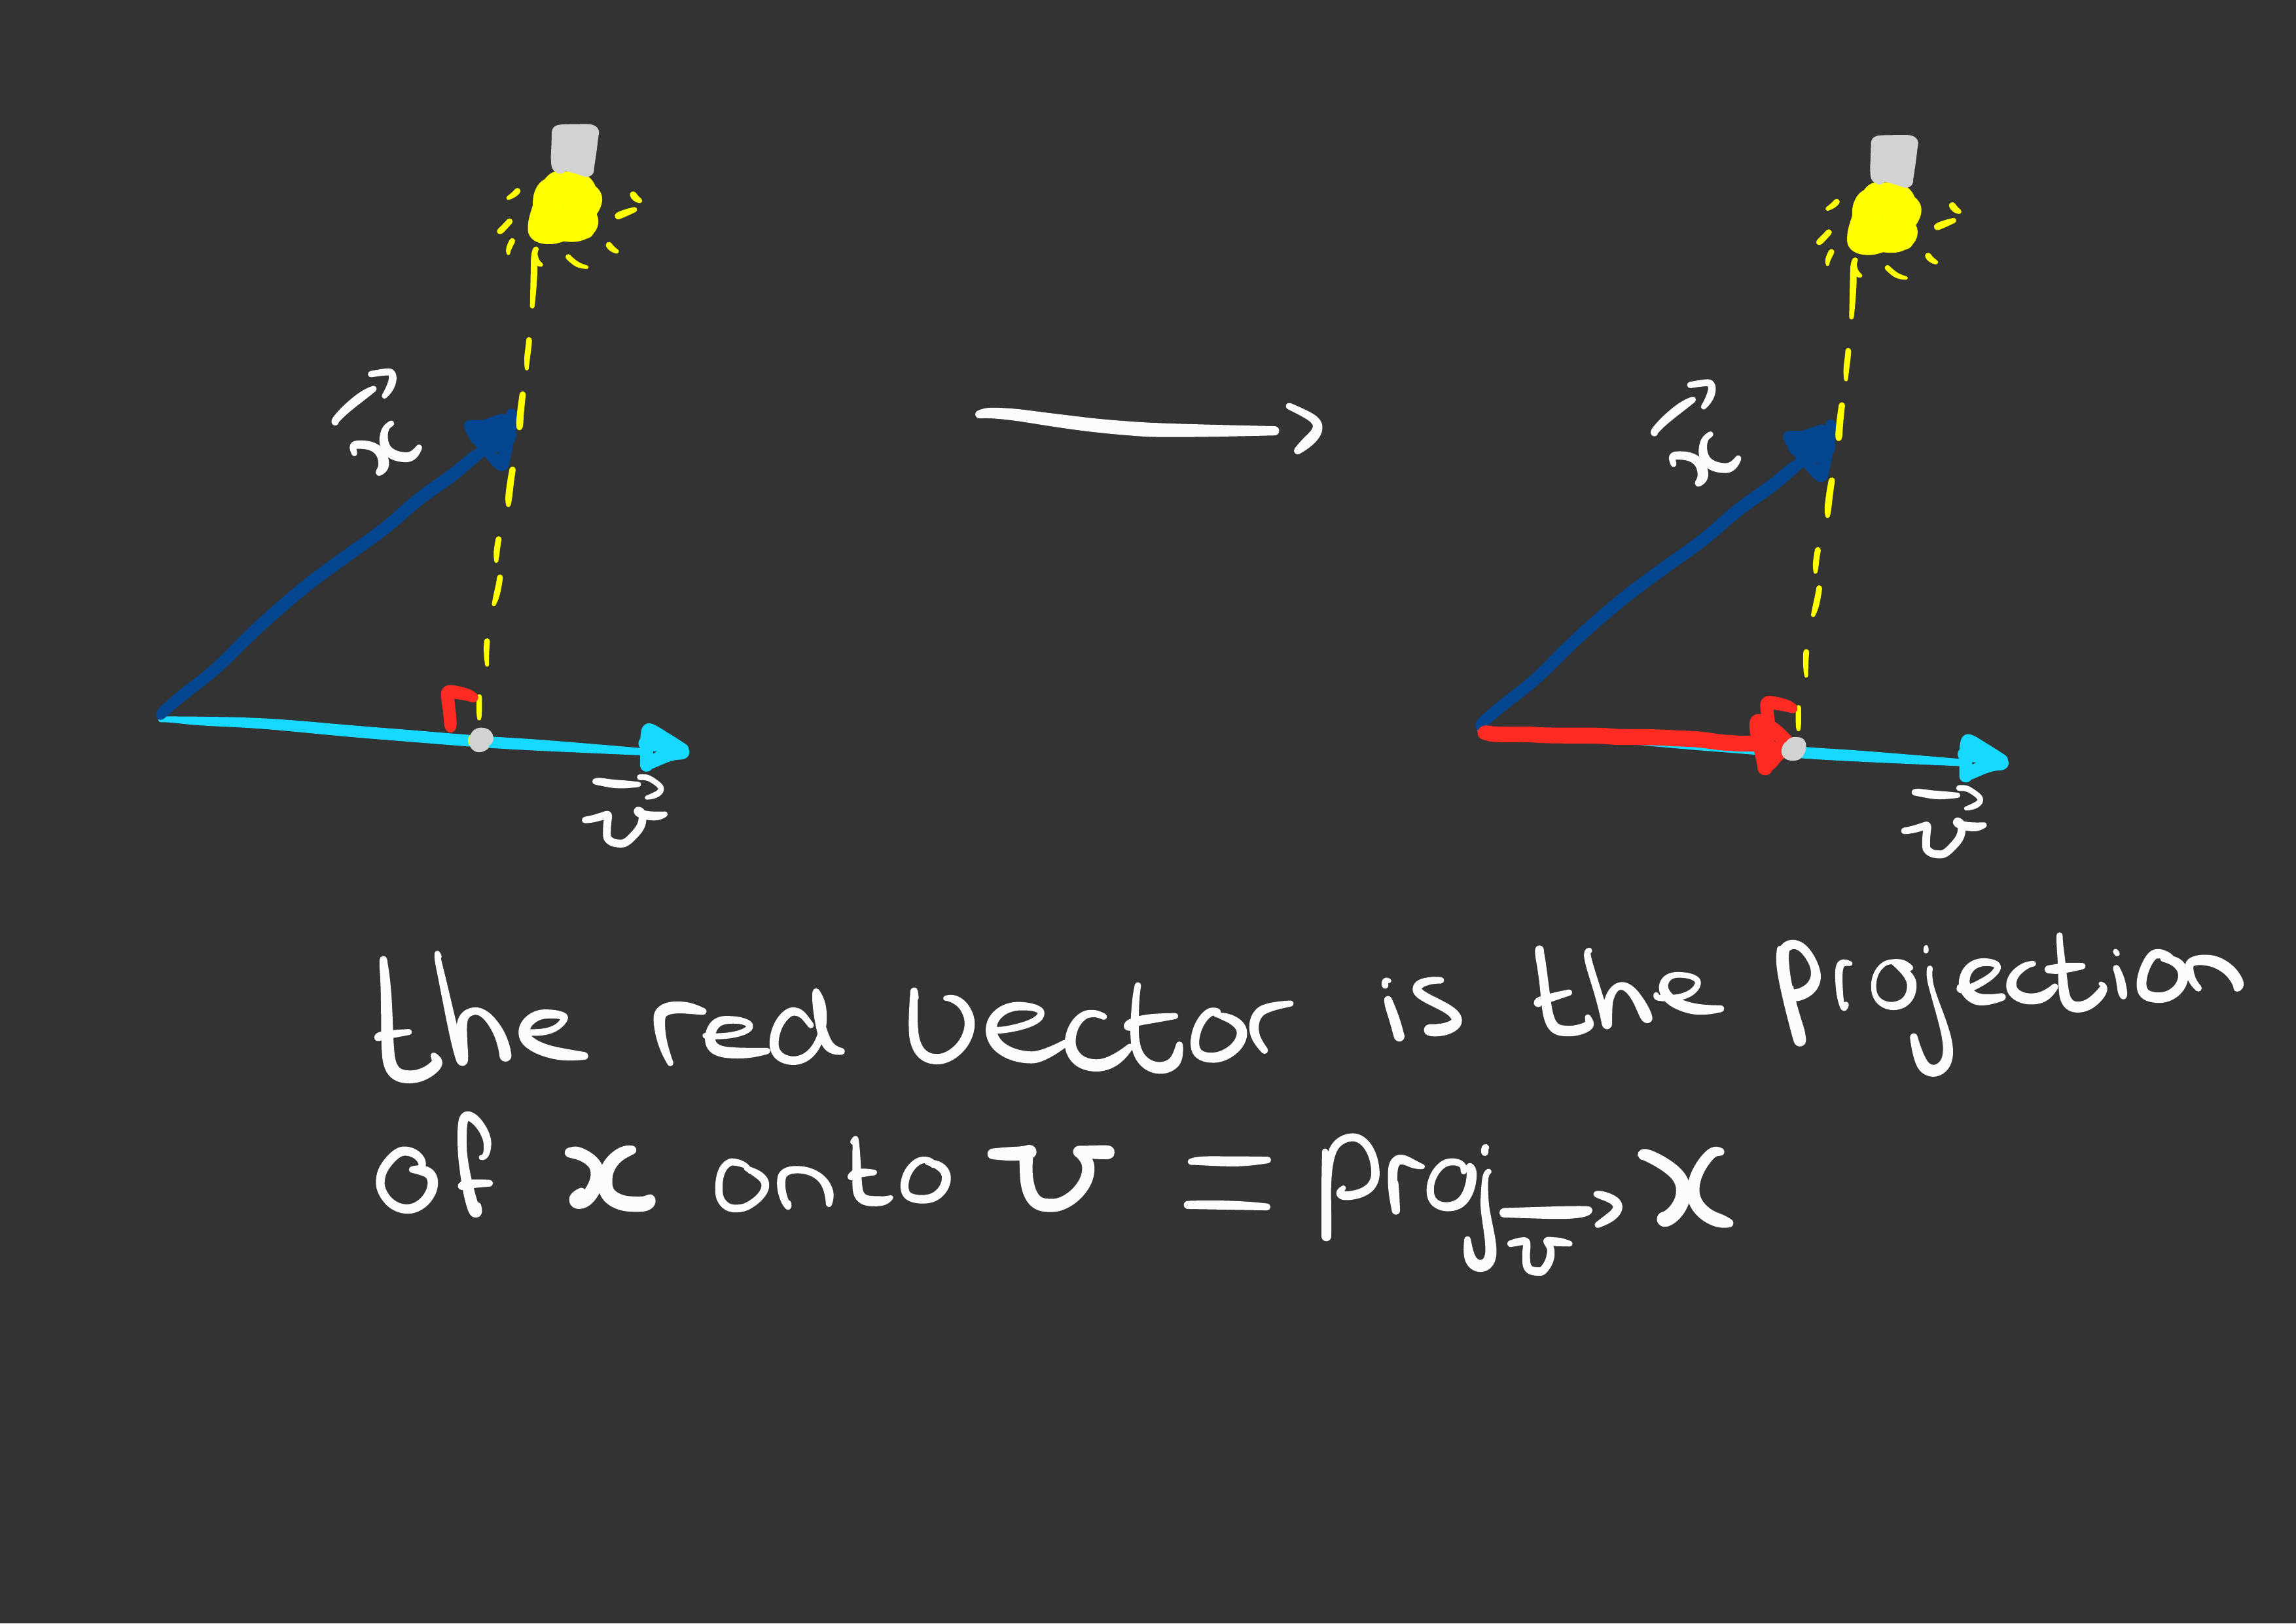 x⃗
x⃗
v⃗
v⃗
the red vector is the projection
of x onto v = proj_v⃗ x